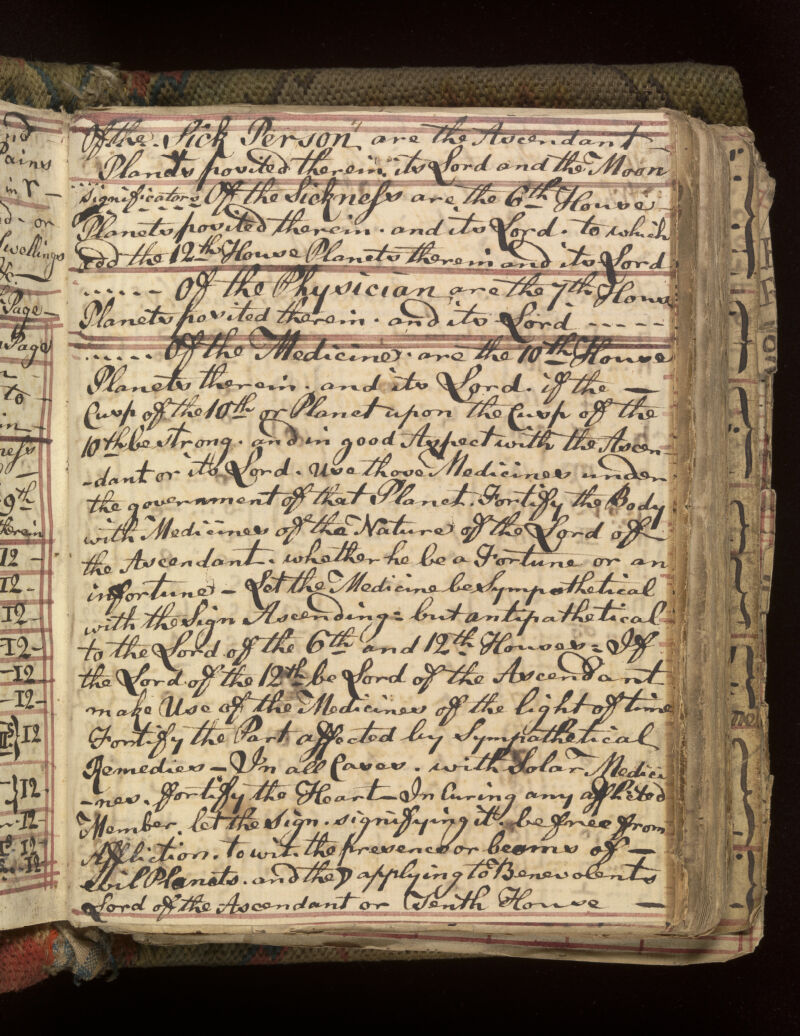 nd
Pains
in ♈ —
nd - or
Swellings
&c
Page —
Page
to —
in —
ness
9th
therein
12 —
12 —
12 —
12 —
12 —
12 —
12
12
12
12
12
Of the Sick Person" are the Ascendant —
Planets posited therein its Lord and the Moon
Significators Of the Sickness are the 6th House
Planets posited therein . and its Lord . to which
add the 12th House Planets therein and its Lord
..... Of the Physician are the 7th House
Planets posited therein . and its Lord .....
..... Of the Medicines . are the 10th House
Planets therein . and its Lord . if the —
Cusp of the 10th or Planet upon the Cusp of the
10th be strong . and in good Aspect with the Ascen-
-dant or its Lord . Use those Medicines under
the government of that Planet . Fortify the Body
with Medicines of the Nature of the Lord of —
the Ascendant . whether he be a Fortune or an
infortune — Let the Medicine be Sympathetical
with the Sign Ascending = but antipathetical
to the Lord of the 6th and 12th Houses = If
the Lord of the 12th be Lord of the Ascendant
make Use of the Medicines of the light of time
Fortify the Part affected by Sympathetical
Remedies — In all Cases . with Solar Medici
-nes . fortify the Heart — In Curing any afflicted
Member . let the Sign . signifying it . be free from
Affliction . to wit . the presence or beams of —
Evil Planets . and the ☽ applying to Benevolents
Lord of the Ascendant or Tenth House —